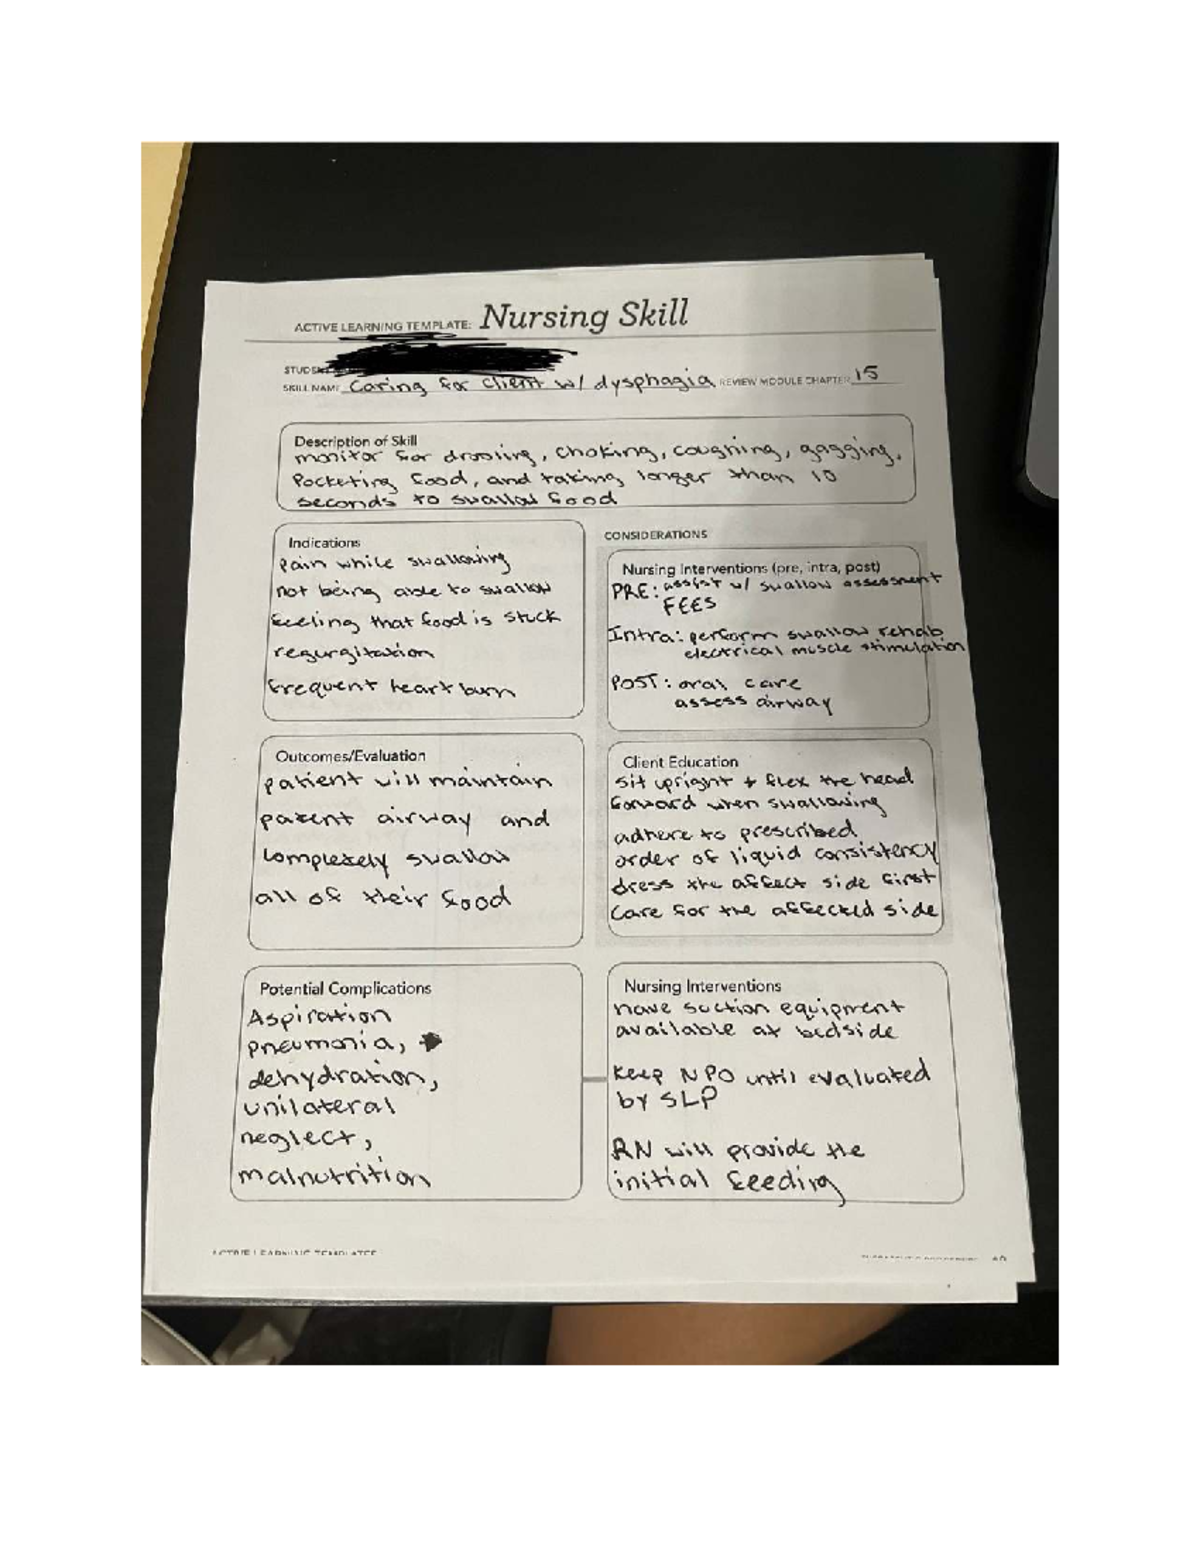 ACTIVE LEARNING TEMPLATE: Nursing Skill
SKILL NAME Caring for client w/ dysphagia REVIEW MODULE CHAPTER 15
Description of Skill
monitor for drooling, choking, coughing, gagging,
Pocketing food, and taking longer than 10
seconds to swallow food
Indications
Pain while swallowing
not being able to swallow
feeling that food is stuck
regurgitation
frequent heartburn
CONSIDERATIONS
Nursing Interventions (pre, intra, post)
PRE: assist w/ swallow assessment
FEES
Intra: perform swallow rehab
electrical muscle stimulation
POST: oral care
assess airway
Outcomes/Evaluation
patient will maintain
patent airway and
completely swallow
all of their food
Client Education
sit upright + flex the head
forward when swallowing
adhere to prescribed
order of liquid consistency
dress the affect side first
care for the affected side
Potential Complications
Aspiration
pneumonia,
dehydration,
unilateral
neglect,
malnutrition
Nursing Interventions
have suction equipment
available at bedside
Keep NPO until evaluated
by SLP
RN will provide the
initial feeding
ACTIVE LEARNING TEMPLATES